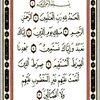 بِسْمِ اللَّهِ الرَّحْمَٰنِ الرَّحِيمِ
الْحَمْدُ لِلَّهِ رَبِّ الْعَالَمِينَ
الرَّحْمَٰنِ الرَّحِيمِ مَالِكِ يَوْمِ الدِّينِ
إِيَّاكَ نَعْبُدُ وَإِيَّاكَ نَسْتَعِينُ اهْدِنَا
الصِّرَاطَ الْمُسْتَقِيمَ صِرَاطَ الَّذِينَ
أَنْعَمْتَ عَلَيْهِمْ غَيْرِ الْمَغْضُوبِ عَلَيْهِمْ
وَلَا الضَّالِّينَ